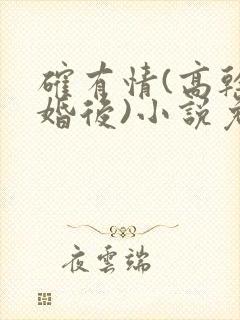 確有情(高幹
婚後)小說
夜雲端